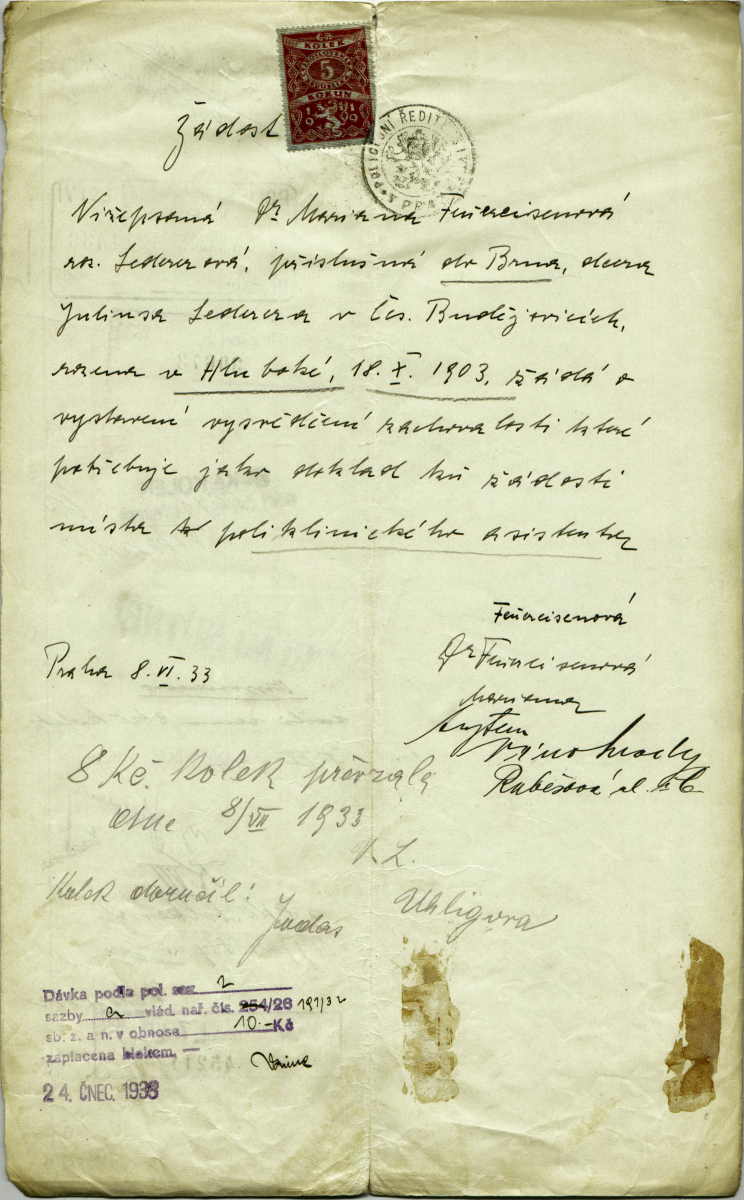 KOLEK
5
KORUN
Žádost
POLICEJNÍ ŘEDITELSTVÍ
Nížepsaná Dr Mariana Feuereisenová
roz. Ledererová, příslušná do Brna, dcera
Juliusa Lederera v Čes. Budějovicích,
rozena v Hluboké, 18. X. 1903, žádá o
vystavení vysvědčení zachovalosti které
potřebuje jako doklad ku žádosti
místa poliklinického asistenta
Feuereisenová
Praha 8. VI. 33
Dr Feuereisenová
Mariana
bytem
Vinohrady
Rubešova ul.
8 Kč. kolek převzala
dne 8/VII 1933
Kolek doručil:
Judas
Uhligova
Dávka podle pol. 2
sazby a vlád. nař. čís. 254/26 191/32
sb. z. a n. v obnose 10.- Kč
zaplacena kolkem. —
24. ČNEC. 1933